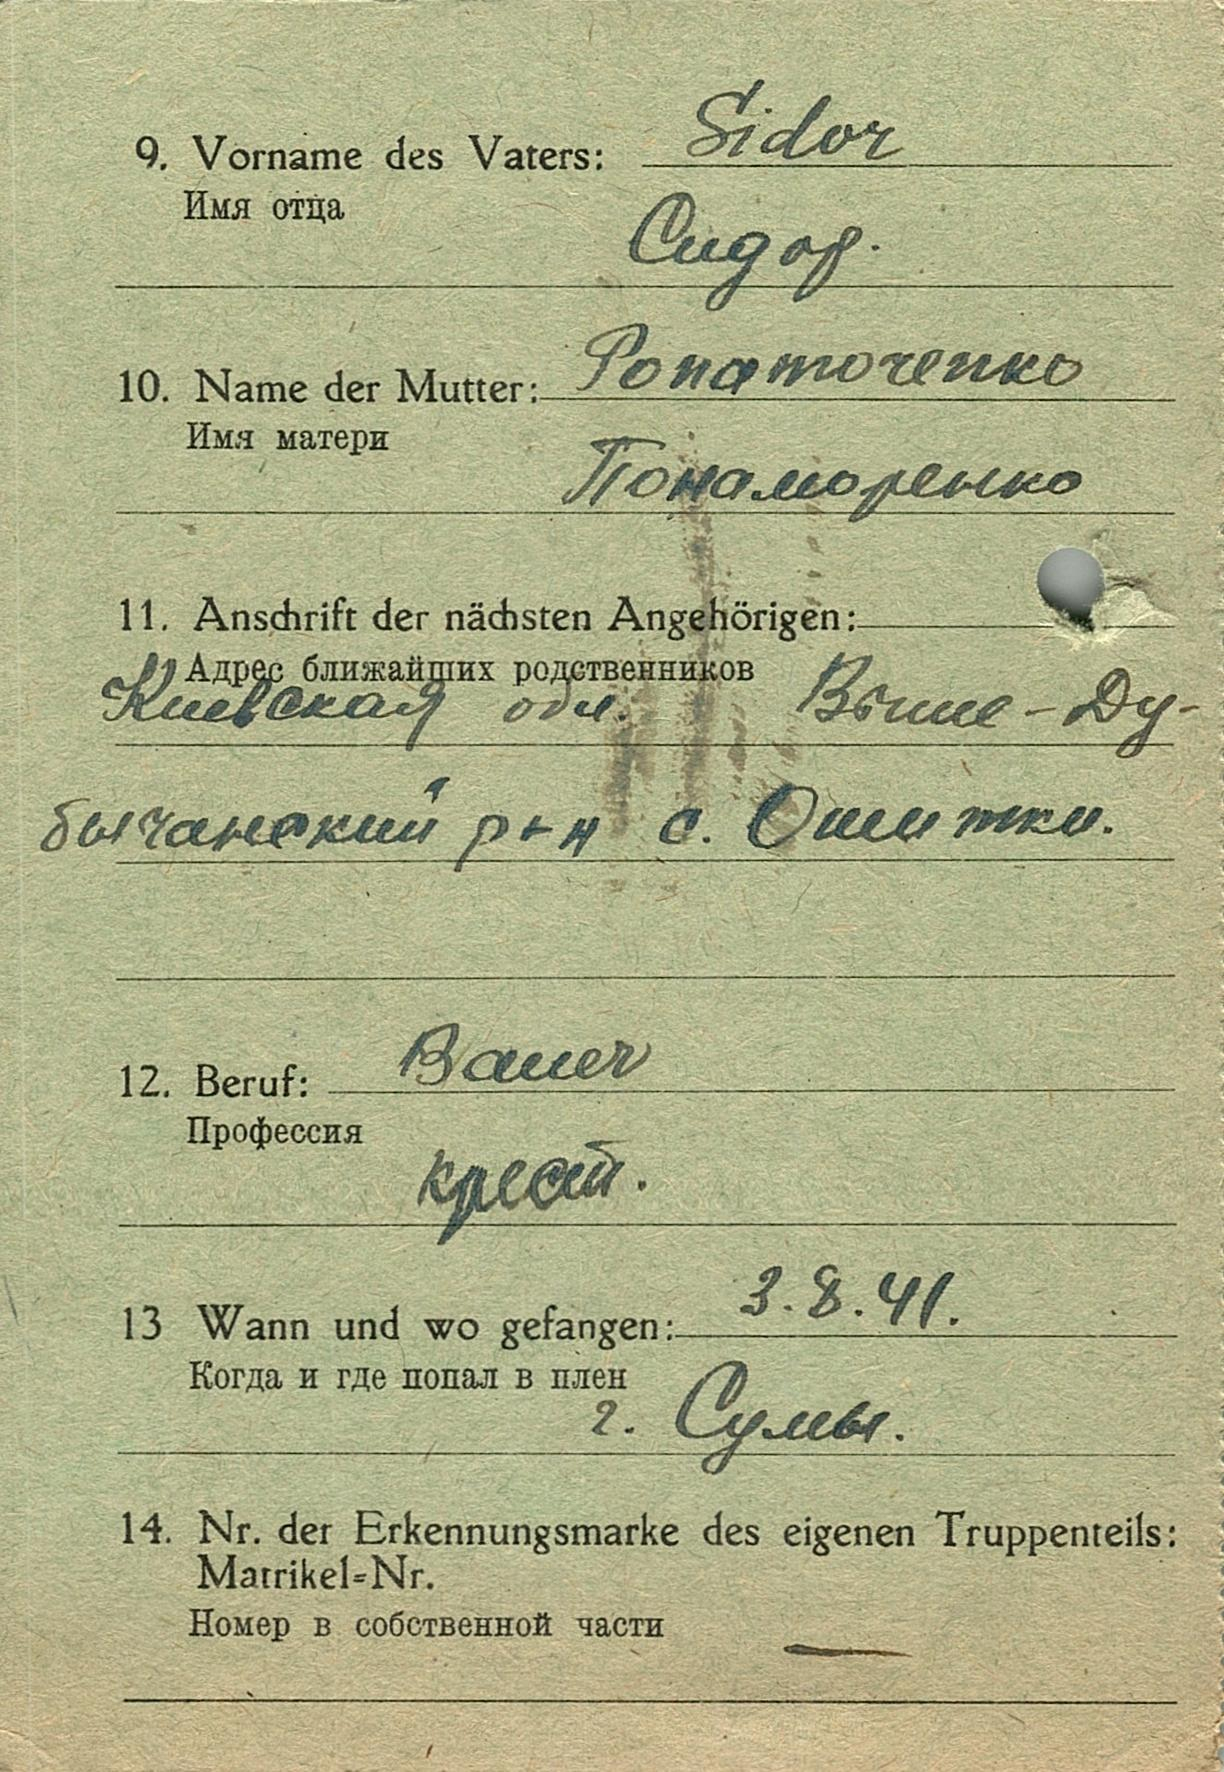 9. Vorname des Vaters: Sidor
Имя отца
Сидор.
10. Name der Mutter: Ponamorenko
Имя матери
Понаморенко
11. Anschrift der nächsten Angehörigen:
Адрес ближайших родственников
Киевская обл. Выше-Ду-
бычанский р-н с. Ошитки.
12. Beruf: Bauer
Профессия
крест.
13 Wann und wo gefangen: 3.8.41.
Когда и где попал в плен
г. Сумы.
14. Nr. der Erkennungsmarke des eigenen Truppenteils:
Matrikel=Nr.
Номер в собственной части
—